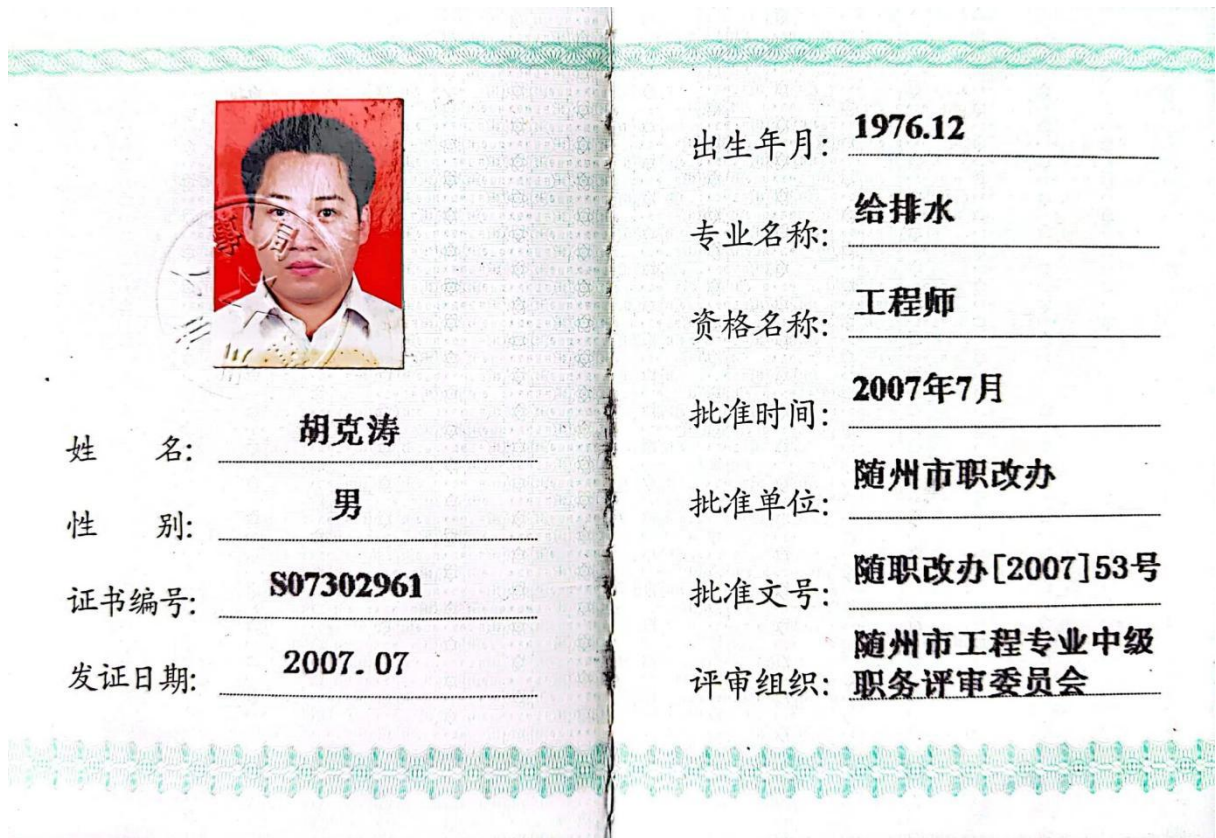 姓 名: 胡克涛
性 别: 男
证书编号: S07302961
发证日期: 2007.07
出生年月: 1976.12
专业名称: 给排水
资格名称: 工程师
批准时间: 2007年7月
批准单位: 随州市职改办
批准文号: 随职改办[2007]53号
评审组织: 随州市工程专业中级
职务评审委员会